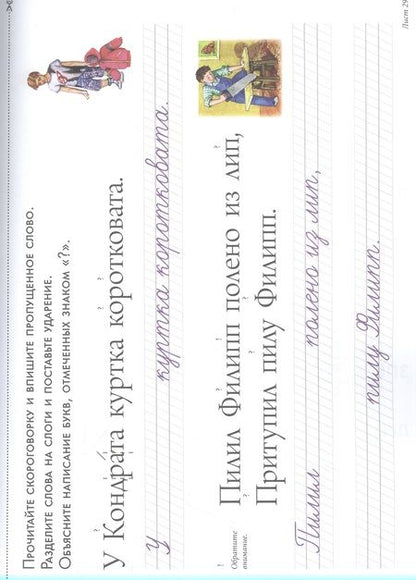 Прочитайте скороговорку и впишите пропущенное слово.
Разделите слова на слоги и поставьте ударение.
Объясните написание букв, отмеченных знаком «?».
У Кондрата куртка коротковата.
У куртка коротковата.
! Обратите внимание.
Пилил Филипп полено из лип,
Притупил пилу Филипп.
Пилил полено из лип,
пилу Филипп.
Лист 29